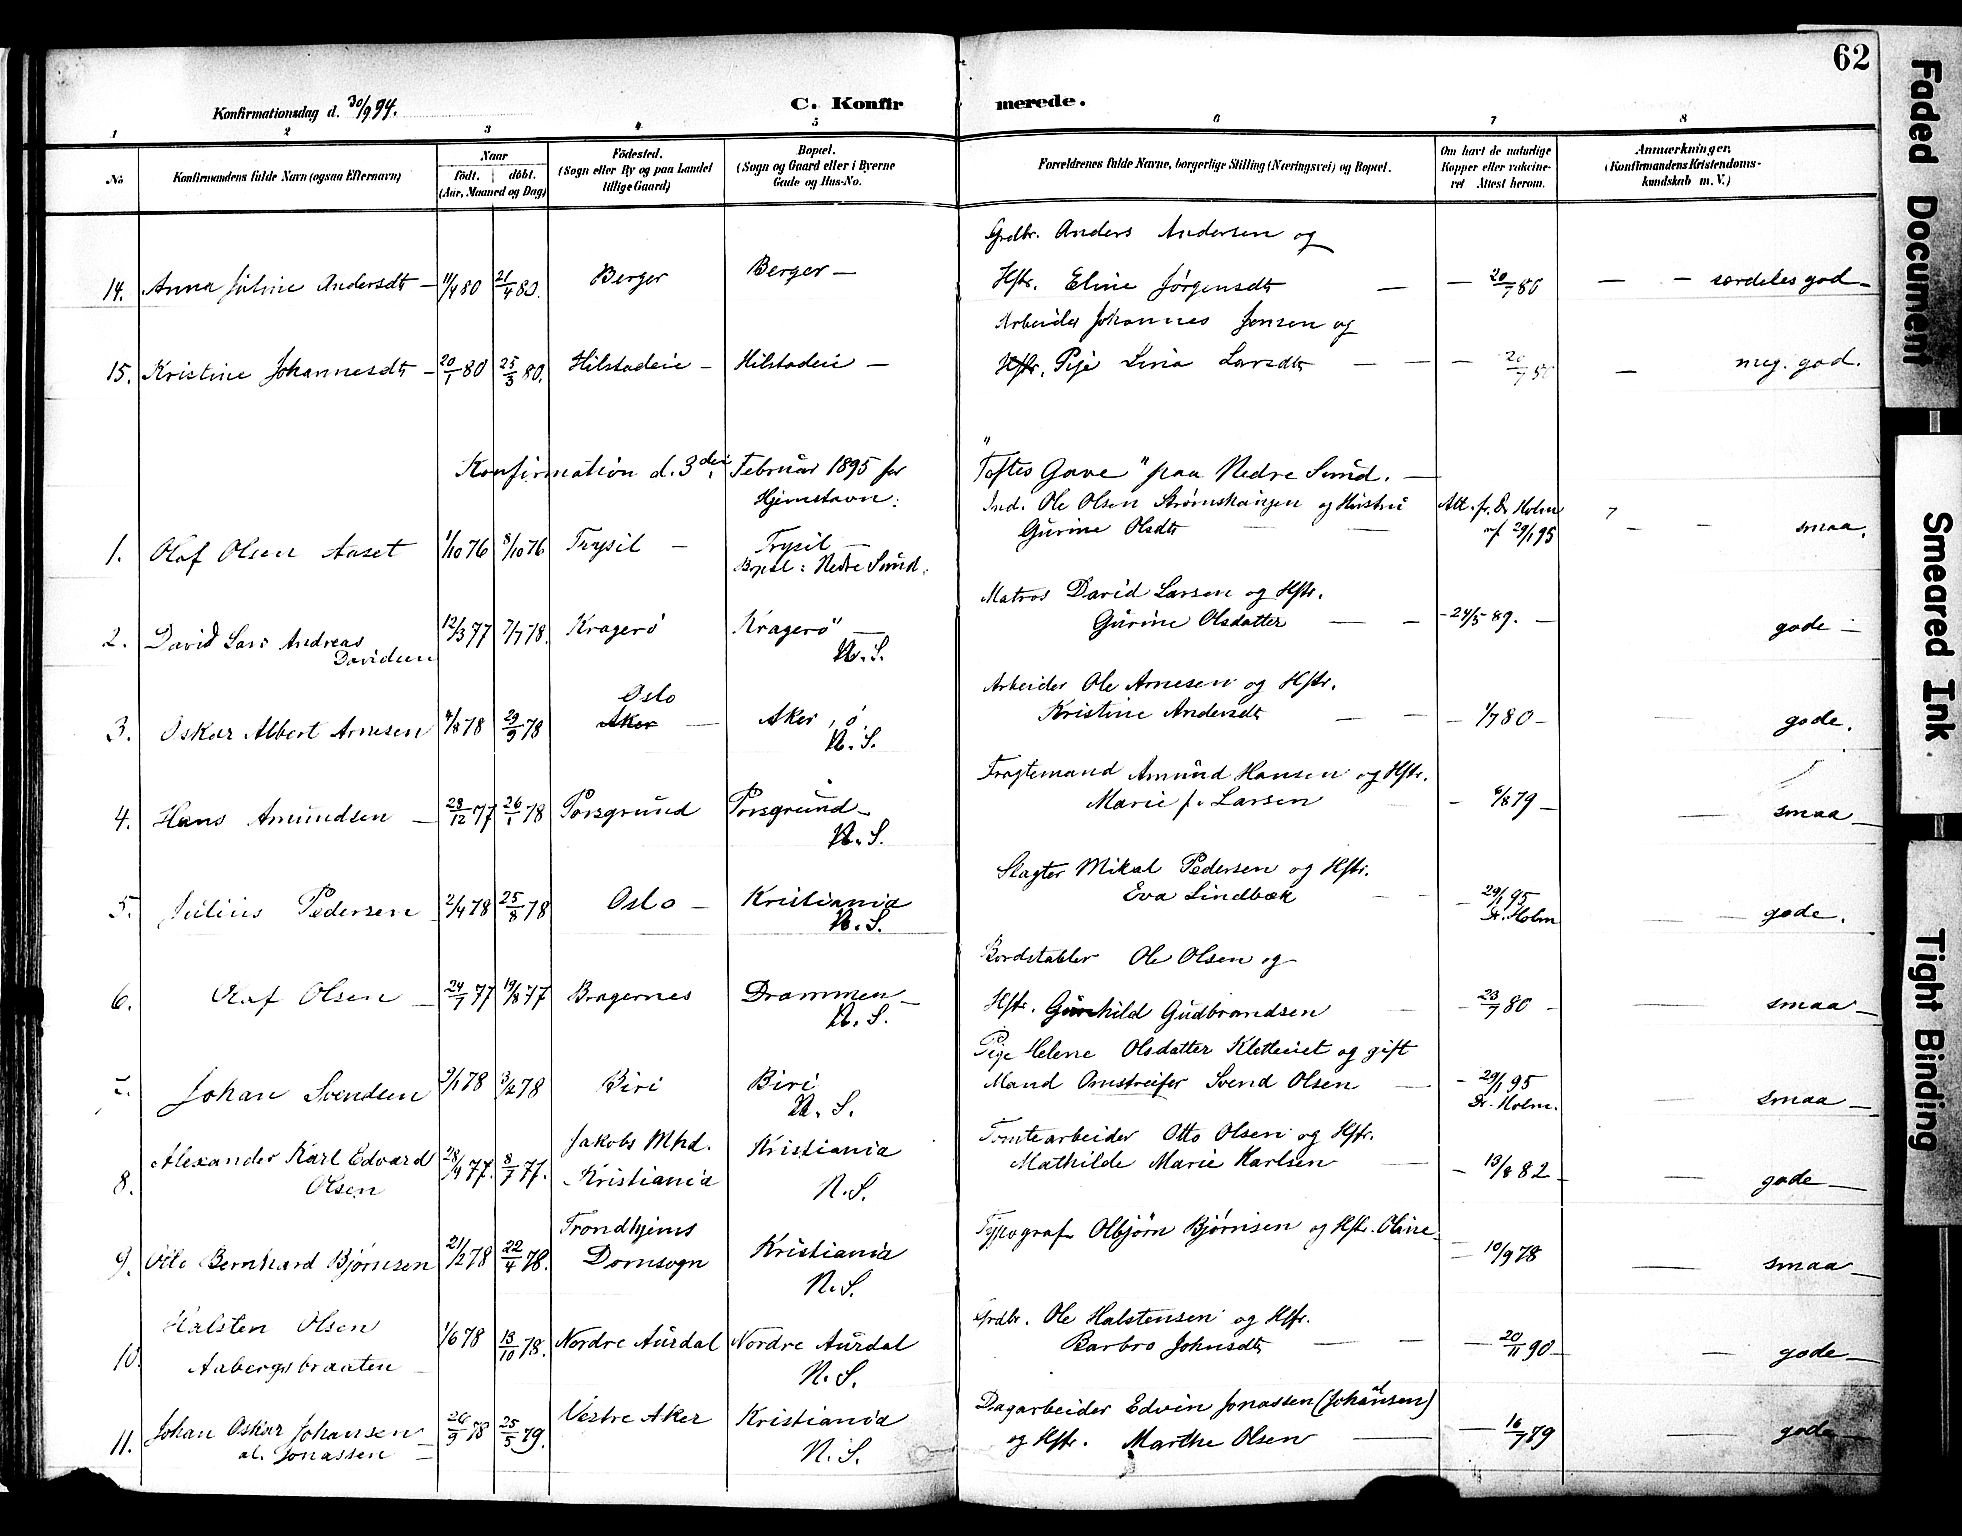 62
Konfirmationsdag d. 30/9 94.
C. Konfirmerede.
1 2 3 4 5 6 7 8
No
Konfirmandens fulde Navn (ogsaa Efternavn)
Naar
födt. döbt.
(Aar, Maaned og Dag)
Födested.
(Sogn eller By og paa Landet
tillige Gaard)
Bopæl.
(Sogn og Gaard eller i Byerne
Gade og Hus-No.
Forældrenes fulde Navne, borgerlige Stilling (Næringsvei) og Bopæl.
Om havt de naturlige
Kopper eller vakcine-
ret Attest herom.
Anmærkninger.
(Konfirmandens Kristendoms-
kundskab m. V.)
Grdbr. Anders Andersen og
14. Anna Juline Andersdtr — 11/4 80 21/4 80. Berger Berger — Hstr. Eline Jørgensdtr — — 20/7 86 — — særdeles god —
Arbeider Johannes Jensen og
15. Kristine Johannesdtr — 20/1 80 25/3 80. Hilstadeie — Hilstadeie — Hstr. Pige Lina Larsdtr — — — 20/7 — meg. god.
Konfirmation d. 3die Februar 1895 for "Toftes Gave" paa Nedre Sund. —
Hjemstavn:
Ind. Ole Olsen Strømskangen og Hustru
Gurine Olsdtr
Att. fr. Dr Holm
af 29/1 95
1. Olaf Olsen Aaset 1/10 76 8/10 76 Trysil — Trysil — smaa.
Bopæl: Nedre Sund.
Matros David Larsen og Hstr.
2. David Lars Andreas
Davidsen 12/3 77 7/7 78. Kragerö Kragerö —
N. S.
Gurine Olsdatter — — - 24/5 89. — gode —
Arbeider Ole Arnesen og Hstr.
Oslo
3. Oskar Albert Arnesen 4/8 78 29/9 78 Aker — Aker, ö.
N. S.
Kristine Andersdtr — — — 1/7 80 — gode.
Fragtemand Amund Hansen og Hstr.
4. Hans Amundsen — 28/12 77 26/1 78 Porsgrund Porsgrund —
N. S.
Marie f. Larsen — 6/8 79 — — smaa —
Slagter Mikal Pedersen og Hstr.
5. Julius Pedersen 2/4 78 25/8 78 Oslo — Kristiania
N. S.
Eva Lindbæk — 29/1 95
Dr. Holm — gode.
Bordstabler Ole Olsen og
6. Olaf Olsen — 24/7 77 19/8 77 Bragernes Drammen —
N. S.
Hstr. Gunhild Gudbrandsen — 23/7 80 — — smaa —
Pige Helene Olsdatter Kletteeiet og gift
7. Johan Svendsen 2/1 78 3/2 78 Biri Biri
N. S.
Mand Omstreifer Svend Olsen — - 29/1 95
Dr. Holm. — smaa —
Tomtearbeider Otto Olsen og Hstr.
8. Alexander Karl Edvard
Olsen 28/4 77. 8/7 77. Jakobs Mhd.
Kristiania Kristiania
N. S.
Mathilde Marie Karlsen — — 13/8 82 — — gode —
9. Otto Bernhard Bjørnsen 21/2 78 22/4 78. Trondhjems
Domsogn Kristiania
N. S.
Typograf Olbjörn Bjørnsen og Hstr. Oline — 10/9 78 — smaa —
10. Halsten Olsen
Aabergsbraaten — 1/6 78 13/10 78. Nordre Aurdal Nordre Aurdal
N. S.
Grdbr. Ole Halstensen og Hstr.
Barbro Johnsdtr — — — 20/11 90 — — gode —
11. Johan Oskar Johansen
al. Jonassen — 26/9 78 25/5 79. Vestre Aker Kristiania
N. S.
Dagarbeider Edvin Jonassen (al Johansen)
og Hstr. Marthe Olsen — — 16/7 89 — gode —
Faded Document
Smeared Ink
Tight Binding